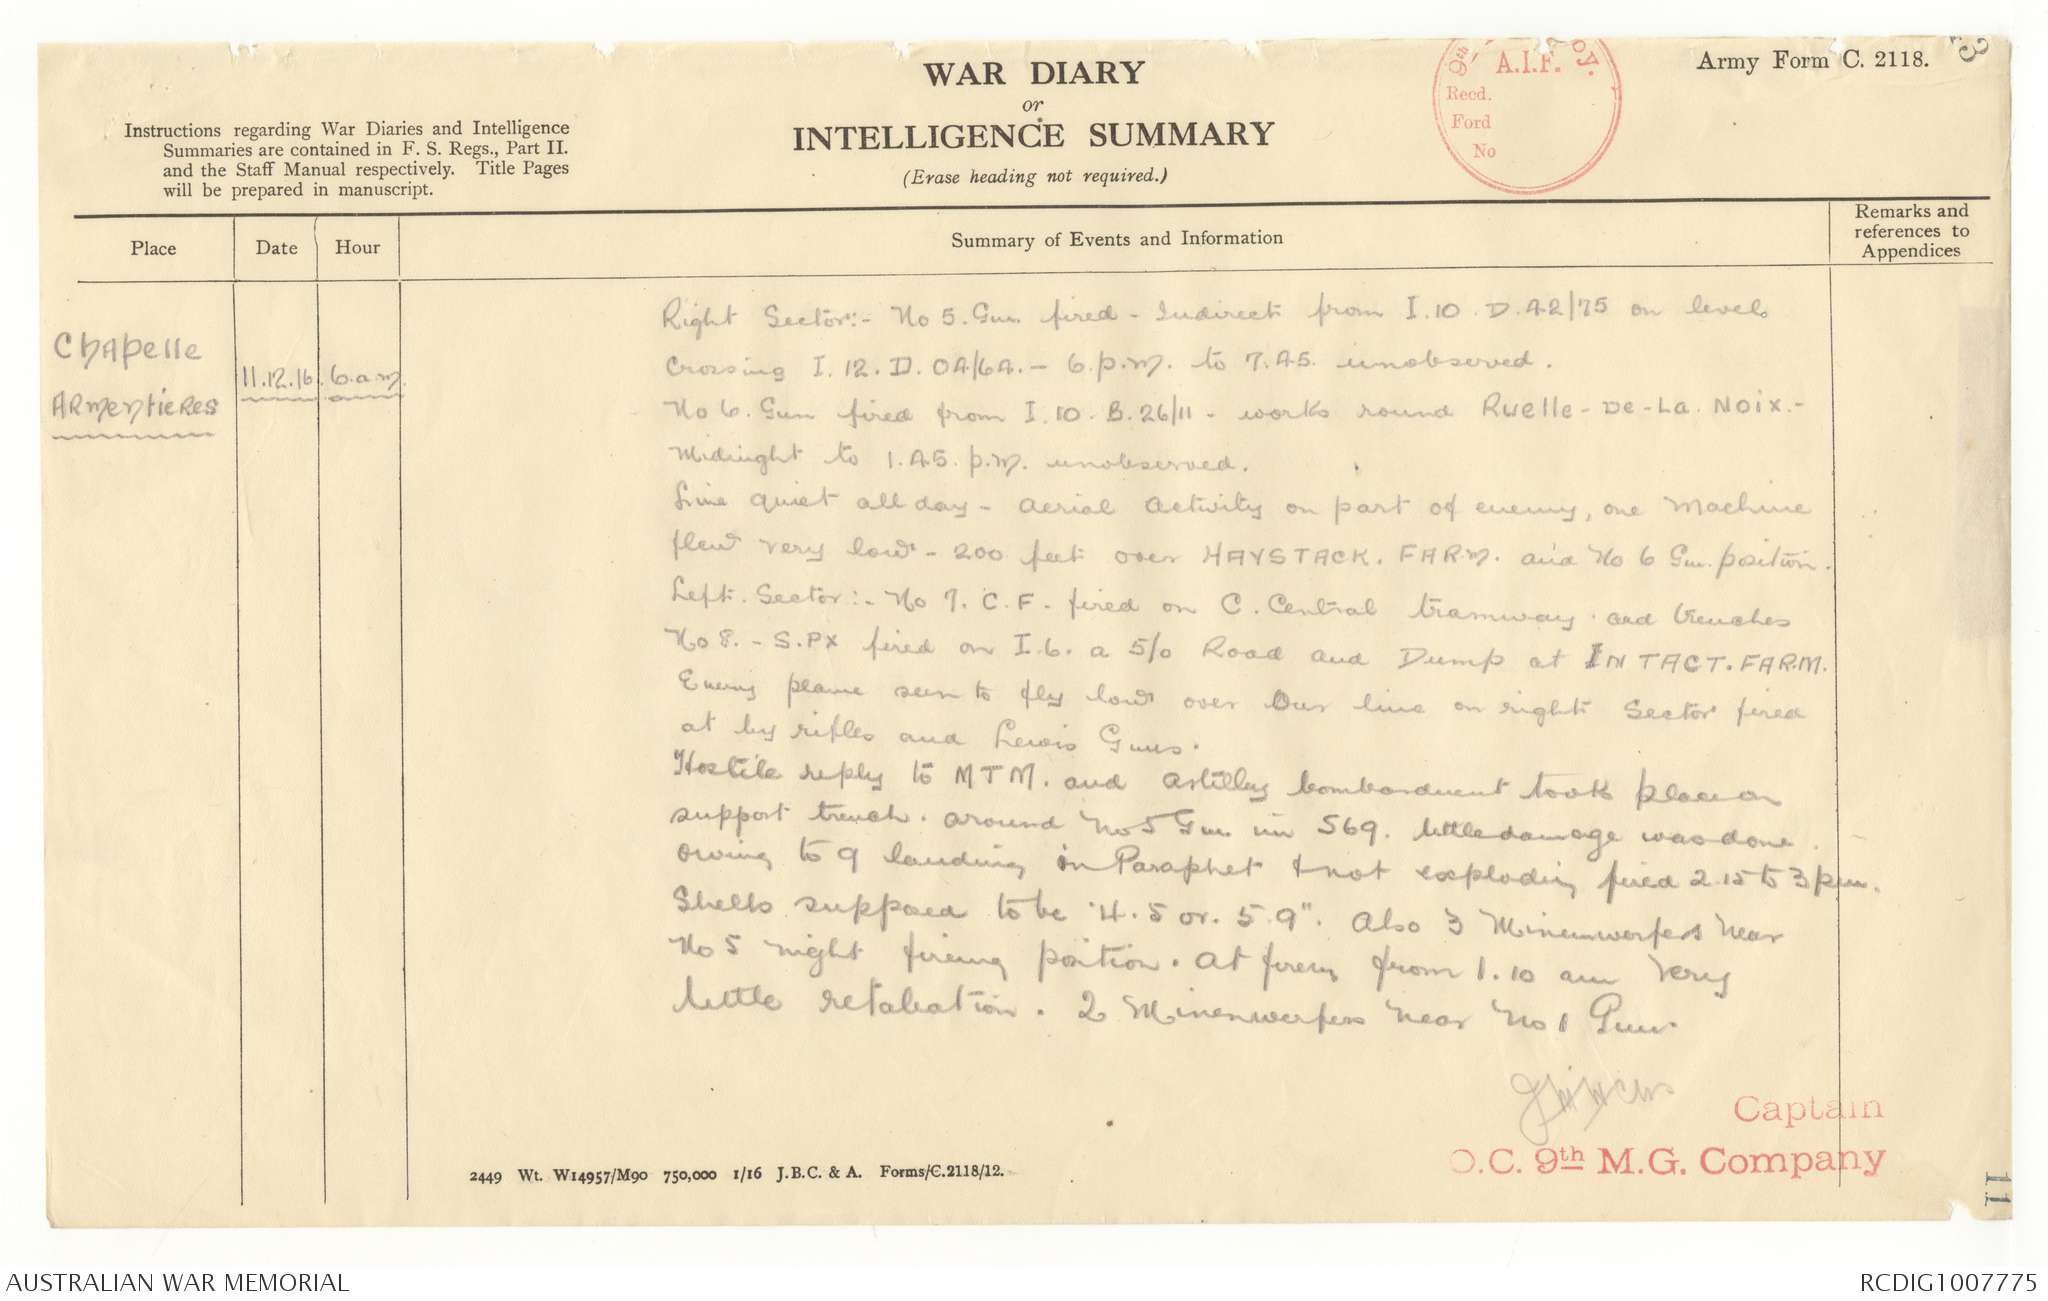 Army Form C. 2118.
WAR DIARY
or
INTELLIGENCE SUMMARY
(Erase heading not required.)
Instructions regarding War Diaries and Intelligence
Summaries are contained in F. S. Regs., Part II.
and the Staff Manual respectively. Title Pages
will be prepared in manuscript.
9th
A.I.F.
Recd.
Ford
No
Place
Date
Hour
Summary of Events and Information
Remarks and
references to
Appendices
Chapelle
Armentieres
11.12.16
6.a.m.
Right Sector:- No 5. Gun fired - Indirect from I.10.D.42/75 on level
Crossing I.12.D.04/64. - 6.p.m. to 7.45. unobserved.
No 6. Gun fired from I.10.B.26/11 - works round Ruelle-De-La. Noix.-
Midnight to 1.45. p.m. unobserved.
Line quiet all day - aerial activity on part of enemy, one machine
flew very low - 200 feet over HAYSTACK. FARM. and No 6 Gun position.
Left. Sector:- No 7. C.F. fired on C. Central tramway. and trenches
No 8. - S.PX fired on I.6. a 5/0 Road and Dump at INTACT. FARM.
Enemy plane seen to fly low over Our line on right Sector fired
at by rifles and Lewis Guns.
Hostile reply to MTM. and artillery bombardment took place on
support trench. around No 5 Gun in S69. little damage was done
owing to 9 landing in Paraphet & not exploding fired 2.15 to 3 pm.
Shells supposed to be "4.5 or. 5.9". Also 3 Minenwerfers Near
No 5 night firing position. At firing from 1.10 am Very
little retaliation. 2 Minenwerfers Near No 1 Gun.
Captain
O.C. 9th M.G. Company
2449 Wt. W14957/M90 750,000 1/16 J.B.C. & A. Forms/C.2118/12.
11
AUSTRALIAN WAR MEMORIAL
RCDIG1007775